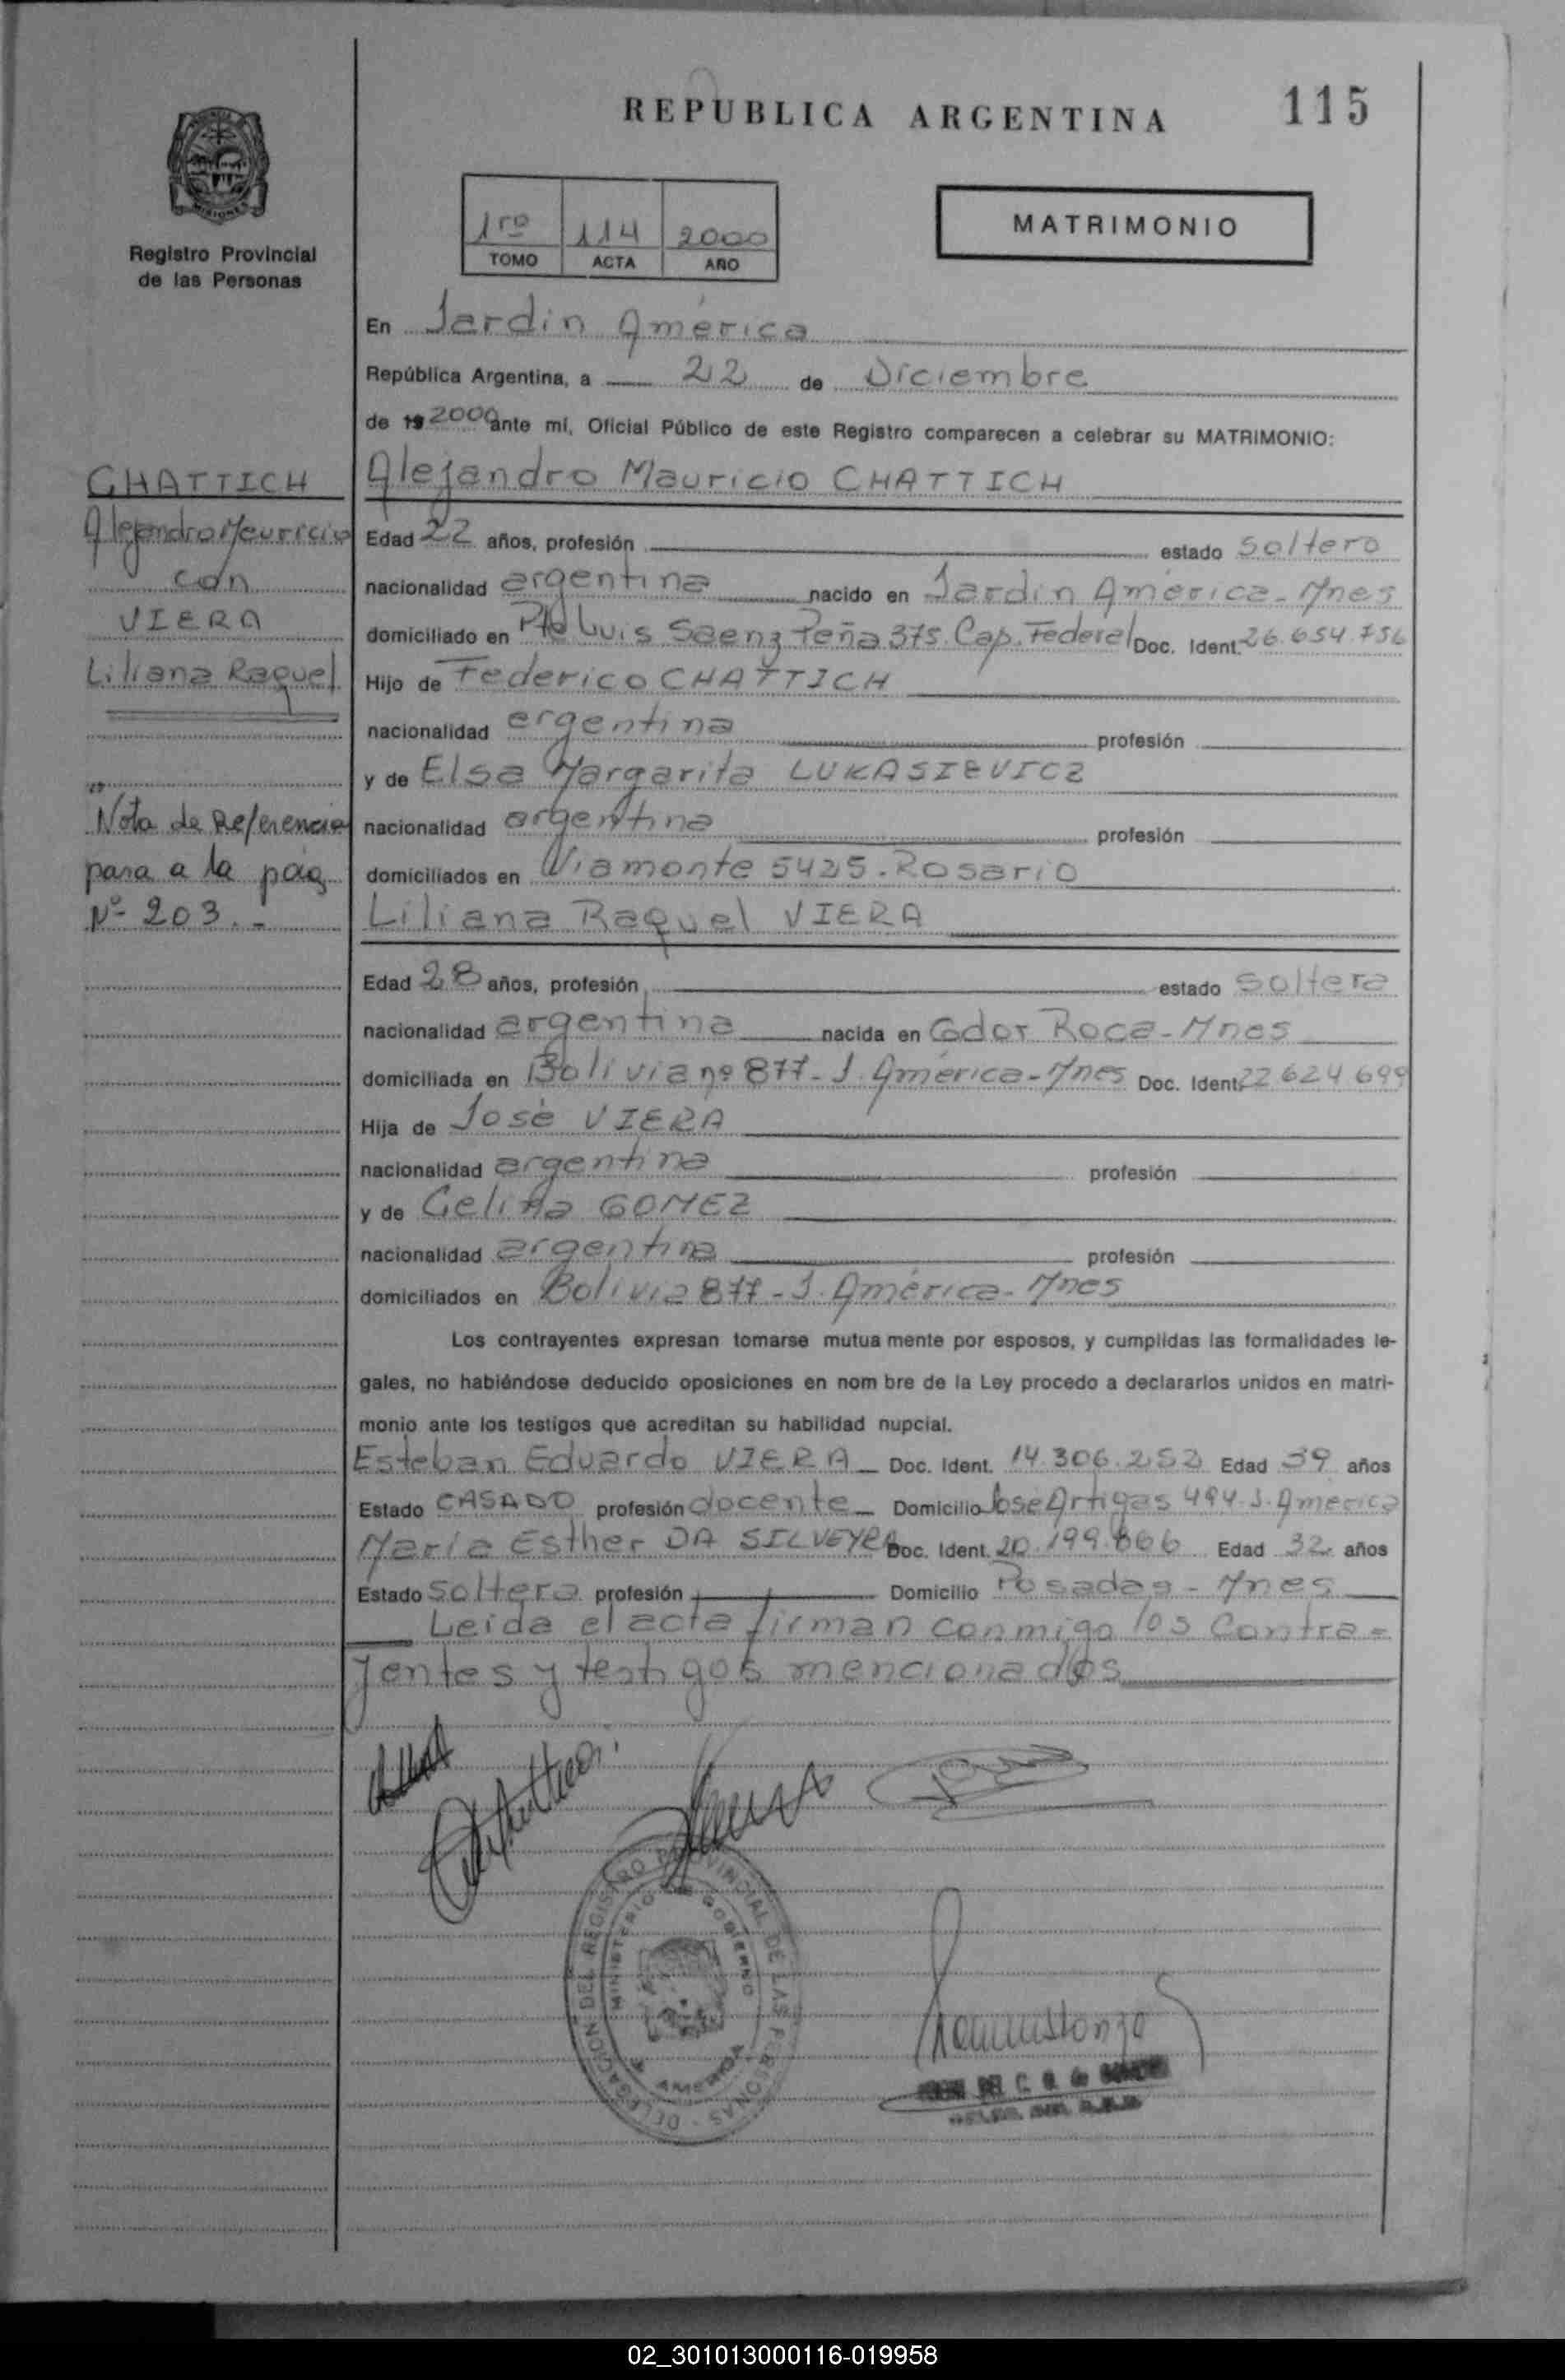 REPUBLICA ARGENTINA
115
MISIONES
Registro Provincial
de las Personas
1ro 114 2000
TOMO ACTA AÑO
MATRIMONIO
En Jardín América
República Argentina, a 22 de Diciembre
de 19 2000 ante mí, Oficial Público de este Registro comparecen a celebrar su MATRIMONIO:
Alejandro Mauricio CHATTICH
Edad 22 años, profesión estado soltero
nacionalidad argentina nacido en Jardín América - Mnes
domiciliado en Pte Luis Saenz Peña 375. Cap. Federal Doc. Ident. 26.654.756
Hijo de Federico CHATTICH
nacionalidad argentina profesión
y de Elsa Margarita LUKASIEVICZ
nacionalidad argentina profesión
domiciliados en Viamonte 5425. Rosario
Liliana Raquel VIERA
Edad 28 años, profesión estado soltera
nacionalidad argentina nacida en Gdor Roca - Mnes
domiciliada en Bolivia nº 877 - J. América - Mnes Doc. Ident. 22.624.699
Hija de José VIERA
nacionalidad argentina profesión
y de Celina GOMEZ
nacionalidad argentina profesión
domiciliados en Bolivia 877 - J. América - Mnes
Los contrayentes expresan tomarse mutua mente por esposos, y cumplidas las formalidades le-
gales, no habiéndose deducido oposiciones en nom bre de la Ley procedo a declararlos unidos en matri-
monio ante los testigos que acreditan su habilidad nupcial.
Esteban Eduardo VIERA Doc. Ident. 14.306.252 Edad 39 años
Estado CASADO profesión docente Domicilio José Artigas 494. J. América
María Esther DA SILVEYRA Doc. Ident. 20.199.866 Edad 32 años
Estado soltera profesión Domicilio Posadas - Mnes
Leida el acta firman conmigo los Contra-
yentes y testigos mencionados
CHATTICH
Alejandro Mauricio
con
VIERA
Liliana Raquel
Nota de Referencia
pasa a la pág
Nº 203.-
DELEGACION DEL REGISTRO PROVINCIAL DE LAS PERSONAS
MINISTERIO DE GOBIERNO
AMERICA
02_301013000116-019958